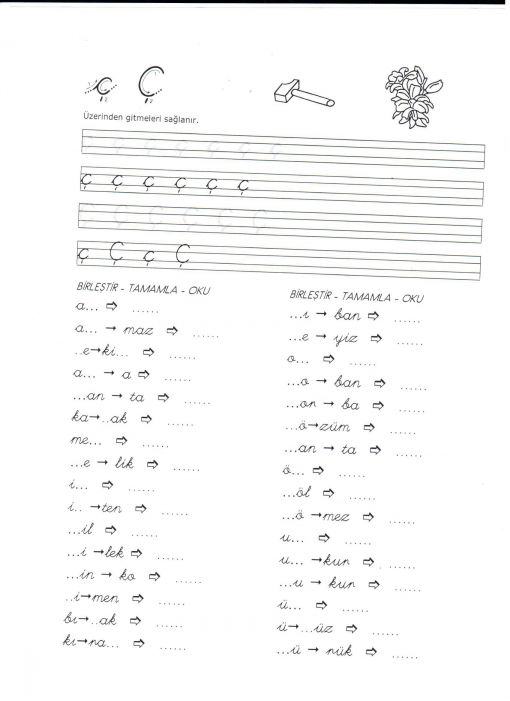 ç Ç
Üzerinden gitmeleri sağlanır.
ç ç ç ç ç ç
ç Ç ç Ç
BİRLEŞTİR - TAMAMLA - OKU
a... ⇨ ......
a... → maz ⇨ ......
..e→ki... ⇨ ......
a... → a ⇨ ......
...an → ta ⇨ ......
ka→..ak ⇨ ......
me... ⇨ ......
...e → lik ⇨ ......
i... ⇨ ......
i.. →ten ⇨ ......
...il ⇨ ......
...i →lek ⇨ ......
...in → ko ⇨ ......
..i→men ⇨ ......
bı→..ak ⇨ ......
kı→na... ⇨ ......
BİRLEŞTİR - TAMAMLA - OKU
...ı → ban ⇨ ......
...e → yiz ⇨ ......
o... ⇨ ......
...o → ban ⇨ ......
...or → ba ⇨ ......
...ö→züm ⇨ ......
...an → ta ⇨ ......
ö... ⇨ ......
...öl ⇨ ......
...ö →mez ⇨ ......
u... ⇨ ......
u... →kun ⇨ ......
...u → kun ⇨ ......
ü... ⇨ ......
ü→...üz ⇨ ......
...ü → rük ⇨ ......